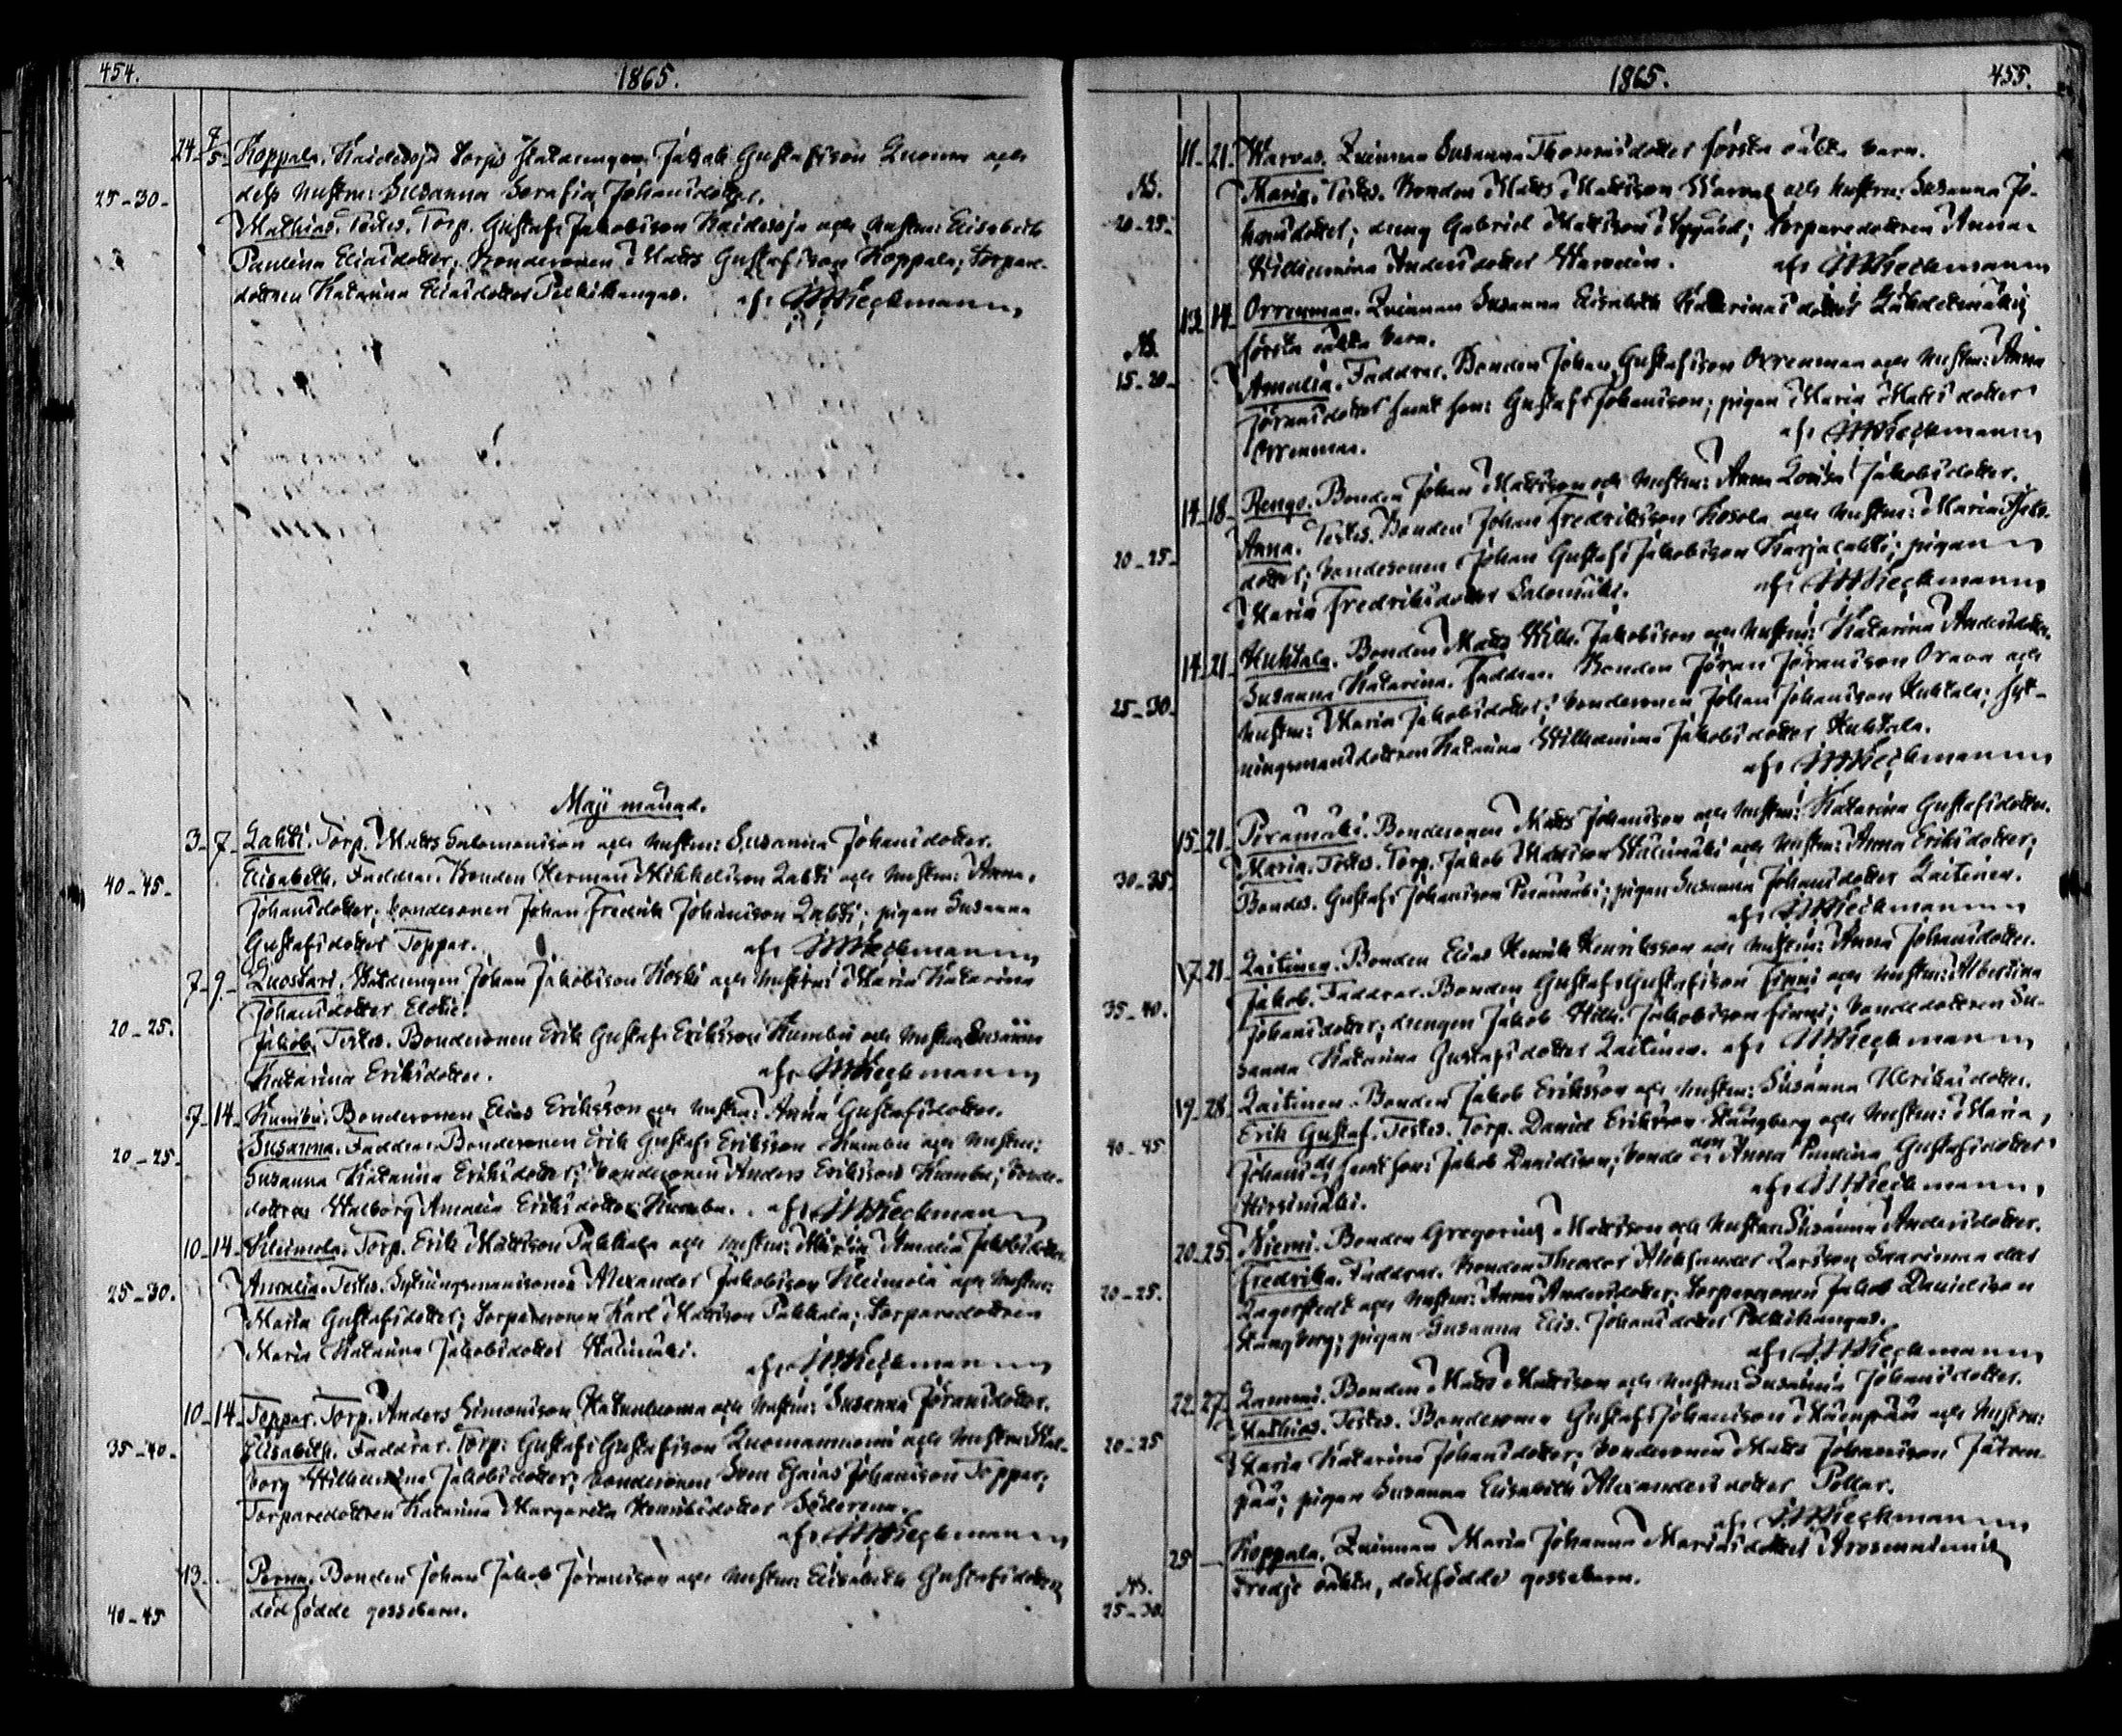 454.
1865.
24 7/5 Koppala. Kaidesoja Torps Jakob Gustafsson Luoma och
25-30. dess hustru: Susanna Serafia Johansdotter.
Mathias. Testes. Torp. Gustaf Jakobsson Kaidesoja och hustru: Elisabeth
Paulina Eliasdotter; Bondesonen Matts Gustafsson Koppala; Torpare-
dottren Katarina Eliasdotter Pelkikangas. af: Hieckmann
Maji månad.
3-7- Lahti. Torp. Matts Salomonsson och hustru: Susanna Johansdotter.
40-45- Elisabeth. Faddrar. Bonden Herman Mikkelsson Lahti och hustru: Anna
Johansdotter; bondesonen Johan Fredrik Johansson Lahti; pigan Susanna
Gustafsdotter Toppar. af: Hieckmann
7-9- Luostari. Johan Jakobsson Koski och hustru: Maria Katarina
Johansdotter
20-25. Jakob. Testes. Bondesonen Erik Gustaf Eriksson Kumbu och hustru Susanna
Katarina Eriksdotter. af: Hieckmann
7-14 Kumbu. Bondesonen Elias Eriksson och hustru: Anna Gustafsdotter.
20-25- Susanna. Faddrar. Bondesonen Erik Gustaf Eriksson Kumbu och hustru:
Susanna Katarina Eriksdotter; bondesonen Anders Eriksson Kumbu; bonde-
dottren Walborg Amalia Eriksdotter Kumbu. af: Hieckmann
10-14- Kleimola. Torp. Erik Mattsson Pakkala och hustru: Maria Amalia Jakobsdotter
25-30. Amalia. Testes. Sytningsmanssonen Alexander Jakobsson Kleimola och hustru:
Maria Gustafsdotter; Torparesonen Karl Mattsson Pakkala; Torparedottren
Maria Katarina Jakobsdotter Kalimäki. af: Hieckmann
10-14- Toppar. Torp. Anders Simonsson och hustru: Susanna Jöransdotter.
35-40- Elisabeth. Faddrar. Torp: Gustaf Gustafsson Luomanniemi och hustru: Wal-
borg Wilhelmina Jakobsdotter; bondesonen Sven Esaias Johansson Toppar;
Torparedottren Katarina Margareta Henriksdotter
af: Hieckmann
13. - Perna. Bonden Johan Jakob Jöransson och hustru: Elisabeth Gustafsdotters
40-45 dödfödde gossebarn.
1865.
455.
11. 21. Warvas. Qvinnan Susanna Thomasdotter första oäkta barn.
NB. Maria. Testes. Bonden Matts Mattsson Warvas och hustru: Susanna Jo-
20-25- hansdotter; dreng Gabriel Mattsson; Torparedottren Anna
Wilhelmina Andersdotter af: Hieckmann
13 14 Orrenmaa. Qvinnan Susanna Elisabeth Katarinasdotter Lähdetmäkis
NB. första oäkta barn.
15-20- Amalia. Faddrar. Bonden Johan Gustafsson Orrenmaa och hustru: Anna
Jöransdotter samt son: Gustaf Johansson; pigan Maria Mattsdotter
Orrenmaa. af: Hieckmann
14-18- Rengo. Bonden Johan Mattsson och hustru: Anna Lovisa Jakobsdotter.
Anna. Testes. Bonden Johan Fredriksson Kosola och hustru: Maria
20-25- dotter; bondesonen Johan Gustaf Jakobsson Karjalahti; pigan
Maria Fredriksdotter Salomäki. af: Hieckmann
14-21- Huhtala. Bonden Matts Wilh. Jakobsson och hustru: Katarina Andersdotter.
25-30- Susanna Katarina. Faddrar. Bonden Jöran Jöransson Orava och
hustru: Maria Jakobsdotter; bondesonen Johan Johansson Huhtala; syt-
ningsmansdottren Katarina Wilhelmina Jakobsdotter Huhtala.
af: Hieckmann
15-21- Perämäki. Bondesonen Matts Johansson och hustru: Katarina Gustafsdotter.
30-35- Maria. Testes. Torp. Jakob Mattsson Kalimäki och hustru: Anna Eriksdotter;
Bondes. Gustaf Johansson Perämäki; pigan Susanna Johansdotter Laitinen.
af: Hieckmann
17-21- Laitinen. Bonden Elias Henrik Henriksson och hustru: Anna Johansdotter.
35-40. Jakob. Faddrar. Bonden Gustaf Gustafsson Finni och hustru: Albertina
Johansdotter; drengen Jakob Wilh. Jakobsson Finni; bondedottren Su-
sanna Katarina Gustafsdotter Laitinen. af: Hieckmann
19-28- Laitinen. Bonden Jakob Eriksson och hustru: Susanna Ulrikasdotter.
40-45- Erik Gustaf. Testes. Torp. Daniel Eriksson Kångberg och hustru: Maria
Johansdr samt son: Jakob Danielsson; bondedottren Anna Paulina Gustafsdotter
Hirsimäki. af: Hieckmann
20-25 Niemi. Bonden Gregorius Mattsson och hustru: Susanna Andersdotter.
20-25. Fredrika. Faddrar. Bonden Theodor Aleksander Larsson Saarimaa eller
Lagerstedt och hustru: Anna Andersdotter; torparesonen Jakob Danielsson
Kångberg; pigan Susanna Elis. Johansdotter Pelkikangas.
af: Hieckmann
22-27- Lammi. Bonden Matts Mattsson och hustru: Susanna Johansdotter.
20-25 Mathias. Testes. Bondesonen Gustaf Johansson och hustru:
Maria Katarina Johansdotter; bondesonen Matts Johansson
pää; pigan Susanna Elisabeth Alexandersdotter Pollar.
af: Hieckmann
25 - Koppala. Qvinnan Maria Johanna Mariasdotter
NB. tredje oäkta, dödfödde gossebarn.
25-30.